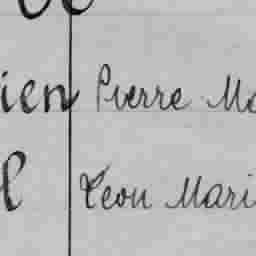 ien Pierre Ma
l Léon Mari